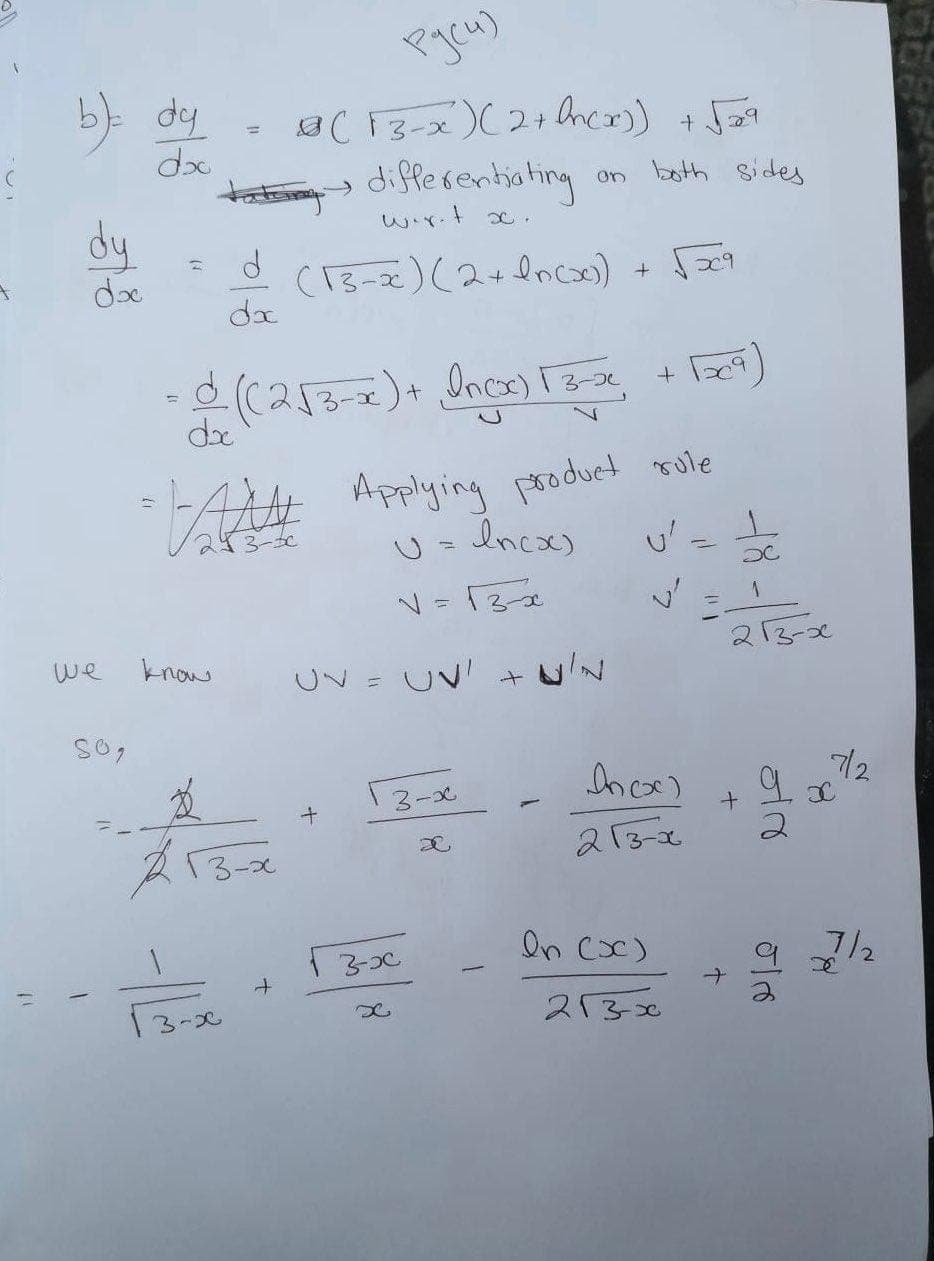 Pg(4)
b)= dy/dx = (√3-x)(2+ln(x)) + √x9
→ differentiating on both sides
w.r.t x.
dy/dx = d/dx (√3-x)(2+ln(x)) + √x9
= d/dx ((2√3-x)+ ln(x) √3-x + √x9)
U V
= Applying product rule
U = ln(x) U' = 1/x
V = √3-x V' = 1/2√3-x
we know UV = UV' + U'V
so,
= - 2/2√3-x + √3-x/x - ln(x)/2√3-x + 9/2 x^7/2
= - 1/√3-x + √3-x/x - ln(x)/2√3-x + 9/2 x^7/2